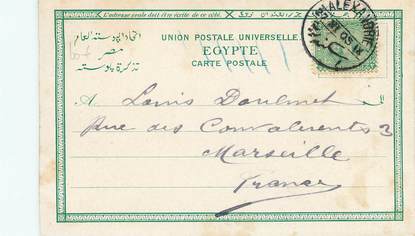 L'adresse seule peut être écrite de ce côté.
اتحاد البوسته العام
مصر
تذكرة بوسته
UNION POSTALE UNIVERSELLE
EGYPTE
CARTE POSTALE
ALEXANDRIE
A Louis
Rue des Convalescents 3
Marseille
France